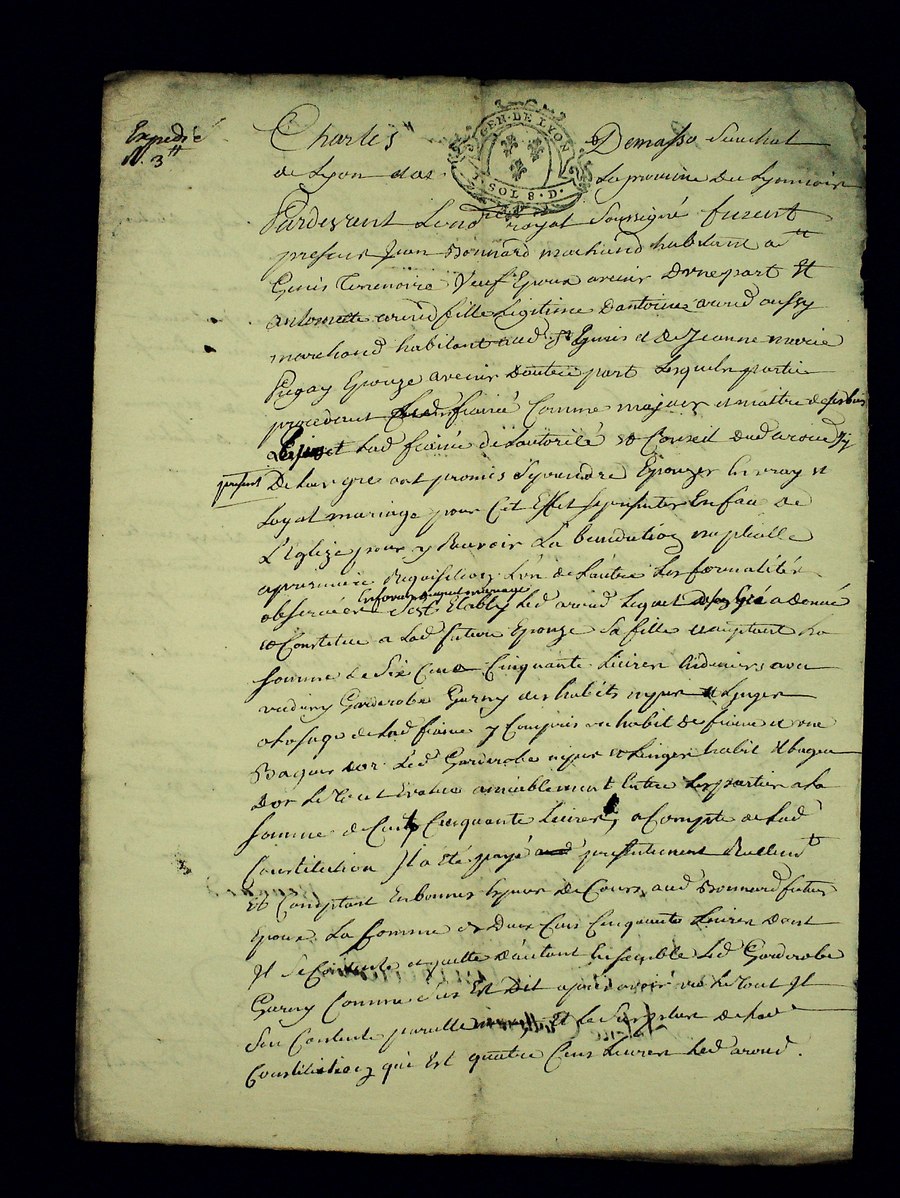 Expedié
N. 3tt
GEN. DE LYON
SOL 8. D.
Charles Demasso Senechal
de Lyon et de la province du Lyonnois
Pardevant Le not royal soussigné furent
presens Jean Bonnard marchand habitant a St
Genis Terrenoire Veuf Epoux avenir d'une part Et
antoinette aroud fille Legitime D'antoine aroud aussy
marchand habitant aud St Genis et de Jeanne marie
Epouze avenir D'autre part Lesquels partie
procedant fiancé Comme majeur et maitre de ses biens
et Lad fiancée de L'autorité et Conseil dud aroud
present
De Leur gre ont promis Se prendre Epouzer En vray et
Loyal mariage pour Cet Effet Se presenter En face de
L'Eglize pour y Recevoir La benediction nuptialle
a premiere Requisition L'un de L'autre Les formalités
observées S'est Etably Led aroud Lequel a donné
En faveur du present mariage
et Constitue a Lad future Epouze Sa fille acceptant La
Somme de Six Cens Cinquante Livres En deniers avec
un Garderobe Garny des habits nipes et Linges
a L'usage de Lad fiancée y Compris un habit de fiance et une
Bague D'or. Led Garderobe nipes et Linges habit et bague
D'or Le tout Evalue amiablement Entre Les parties a La
Somme de Cent Cinquante Livres, a Compte de Lad
Constitution Il a été payé presentement Reellemt
Et Comptant En bonnes Especes de Cours aud Bonnard futur
Epoux La Somme de Deux Cens Cinquante Livres Dont
Il Se Contente et quitte D'autant Ensemble Led Garderobe
Garny Comme dit Est Dit apres avoir vu Le tout Il
S'en Contente pareillement Et Le Surplus de Lad
Constitution qui Est quatre Cens Livres Led aroud.